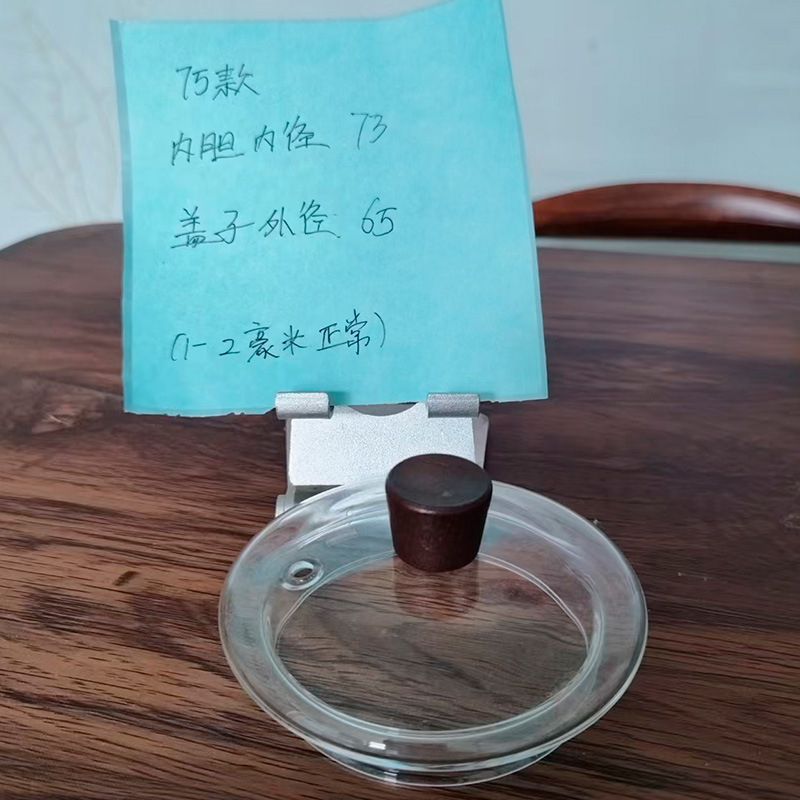 75款
内胆内径 73
盖子外径 65
(1-2毫米正常)